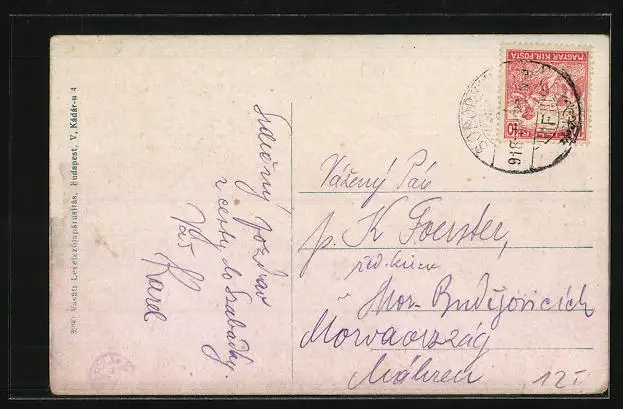 Srdečný pozdrav
z cesty do Szabadky.
Váš
Karel
Vážený Pán
p. K Foerster,
řed. kůru
Mor. Budějovicích
Morvaország
Mähren
12
MAGYAR KIR. POSTA
10
918
Vasúti Levelezőlapárusítás, Budapest, V, Kádár-u 4